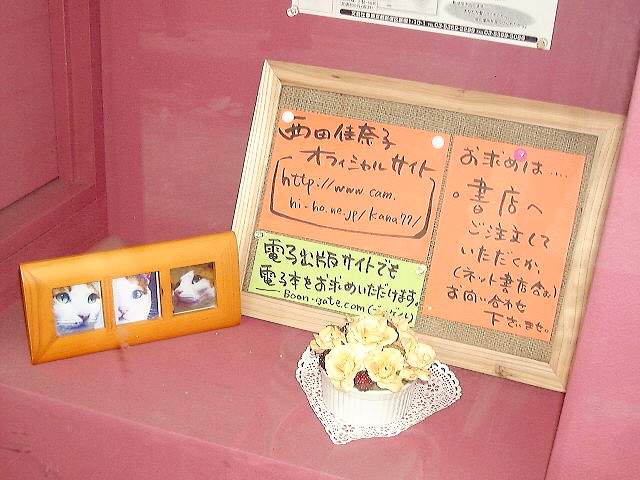 西田佳奈子
オフィシャルサイト
http://www.cam.
hi-ho.ne.jp/kana77/
電子出版サイトでも
電子本をお求めいただけます。
Boon-gate.com(ブンゲイト)
お求めは.....
。書店へ
ご注文して
いただくか、
(ネット書店含む)
お問い合わせ
下さいませ。